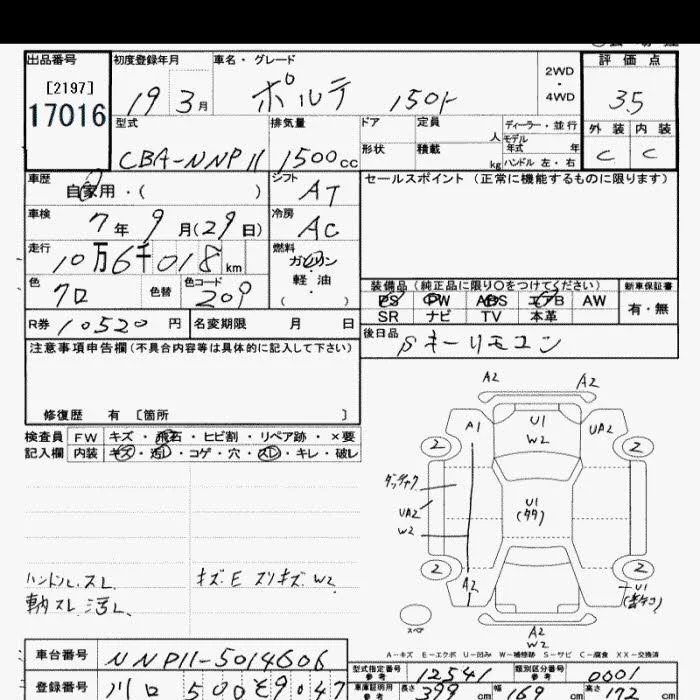 出品番号 初度登録年月 車名・グレード 2WD・4WD 評価点
[2197]
17016 19 3月 ポルテ 150r 3.5
型式 排気量 ドア 定員 人 ディーラー・並行 外装 内装
モデル年式 年
CBA-NNP11 1500cc 形状 積載 kg ハンドル 左・右 C C
車歴 自家用・( ) シフト AT セールスポイント (正常に機能するものに限ります)
車検 7年9月(29日) 冷房 AC
走行 10万6千018km 燃料 ガソリン・軽油 ( )
色 クロ 色替 色コード 209 装備品(純正品に限り○をつけてください) 新車保証書
PS PW ABS エアB AW 有・無
SR ナビ TV 本革
R券 10520円 名変期限 月 日 後日品 Sキーリモコン
注意事項申告欄(不具合内容等は具体的に記入して下さい)
修復歴 有 〔箇所 〕
検査員 FW キズ・飛石・ヒビ割・リペア跡・×要
記入欄 内装 キズ・汚レ・コゲ・穴・スレ・キレ・破レ
A2 A2
A1 U1 W2 UA2
2 2
UA2 U1
W2
2 2
A2 U1
スペア A2
W2
ハンドルスレ キズE スリキズW2
A-キズ E-エクボ U-凹み W-補修跡 S-サビ C-腐食 XX-交換済
車台番号 NNP11-5014606 型式指定番号 参考 12541 類別区分番号 参考 0001
登録番号 川口 500 そ 9047 車庫証明用 参考 長さ 399cm 幅 169 高さ 172cm